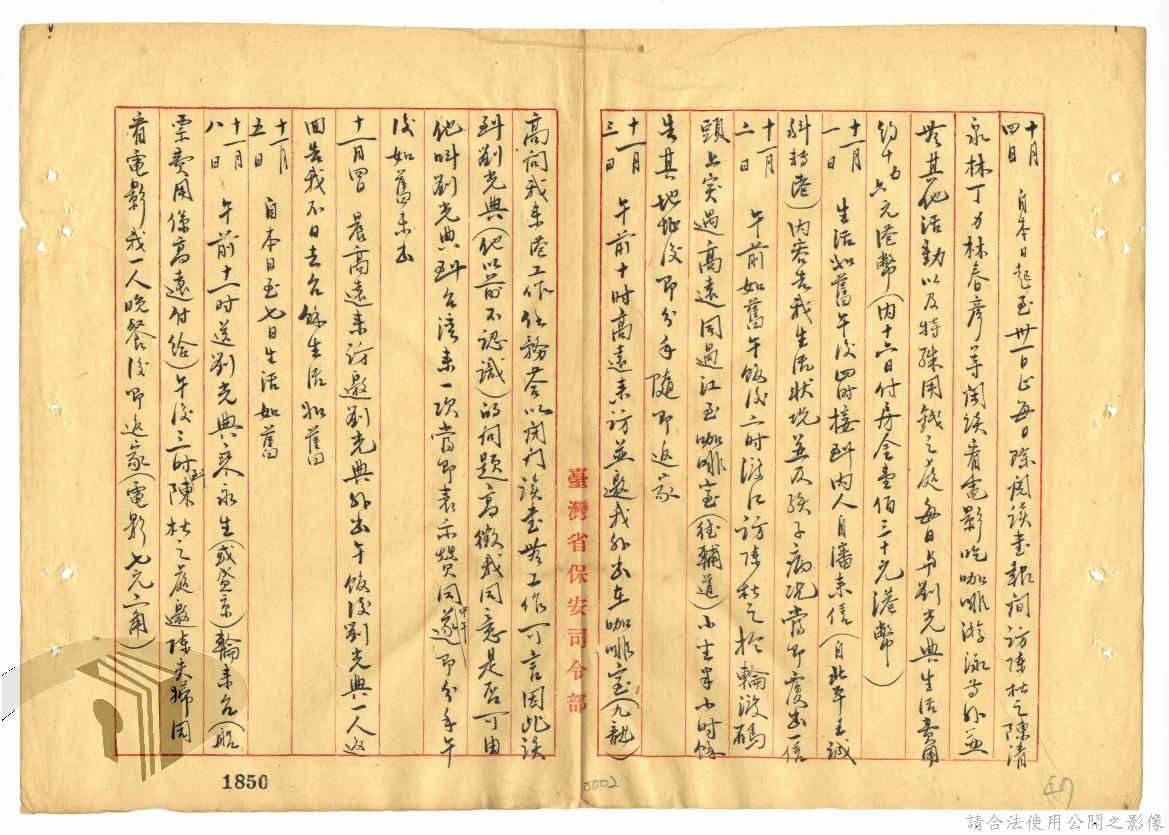 十月四日 自本日起至卅一日止每日除閱讀書報詢訪陳杖之陳清
永林丁乃林春彥等閒談看電影吃咖啡游泳等外並
無其他活動以及特殊用錢之處每日与劉光典生活費用
約十五六元港幣(內十六日付房金壹佰三十元港幣)
十一月一日 生活如舊午後四時接到內人自瀋来信(自北平王誠
科轉港)內容告我生活狀況並及孩子病況當即覆出一信
十一月二日 午前如舊午飯後二时渡江訪陳杖之於輪渡碼
頭上突遇高遠同過江至咖啡室(德輔道)小坐半小时餘
告其地址後即分手隨即返家
十一月三日 午前十时高遠来訪並邀我外出在咖啡室(九龍)
臺灣省保安司令部
高詢我来港工作任務荅以閉門讀書無工作可言因此談
到劉光典(他以前不認識)的问題高徵我同意是否可由
他叫劉光典到台湾来一次當即表示贊同遂即分手午
後如舊未出
十一月四日 晨高遠来訪邀劉光典外出午飯後劉光典一人返
回告我不日去台餘生活如舊
十一月五日 自本日至七日生活如舊
十一月八日 午前十一时送劉光典乘永生(或盛京)輪来台(船
票費用係高遠付給)午後三时到陳杖之處邀陳夫婦同
看電影我一人晚餐後即返家(電影七元二角)
1850
0002
47
請合法使用公開之影像